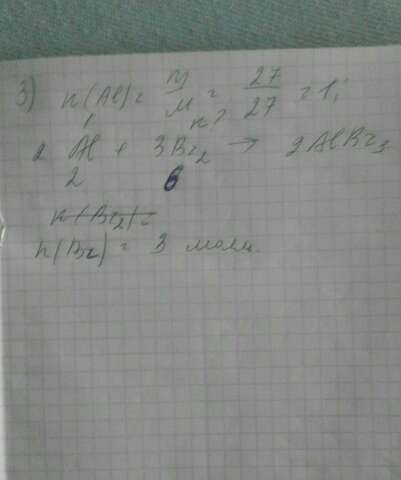 3) n(Al) = m/M = 27/27 = 1;
1 n ?
2 Al + 3Br2 → 2AlBr3
2 6
n(Br2) =
n(Br) = 3 моль.